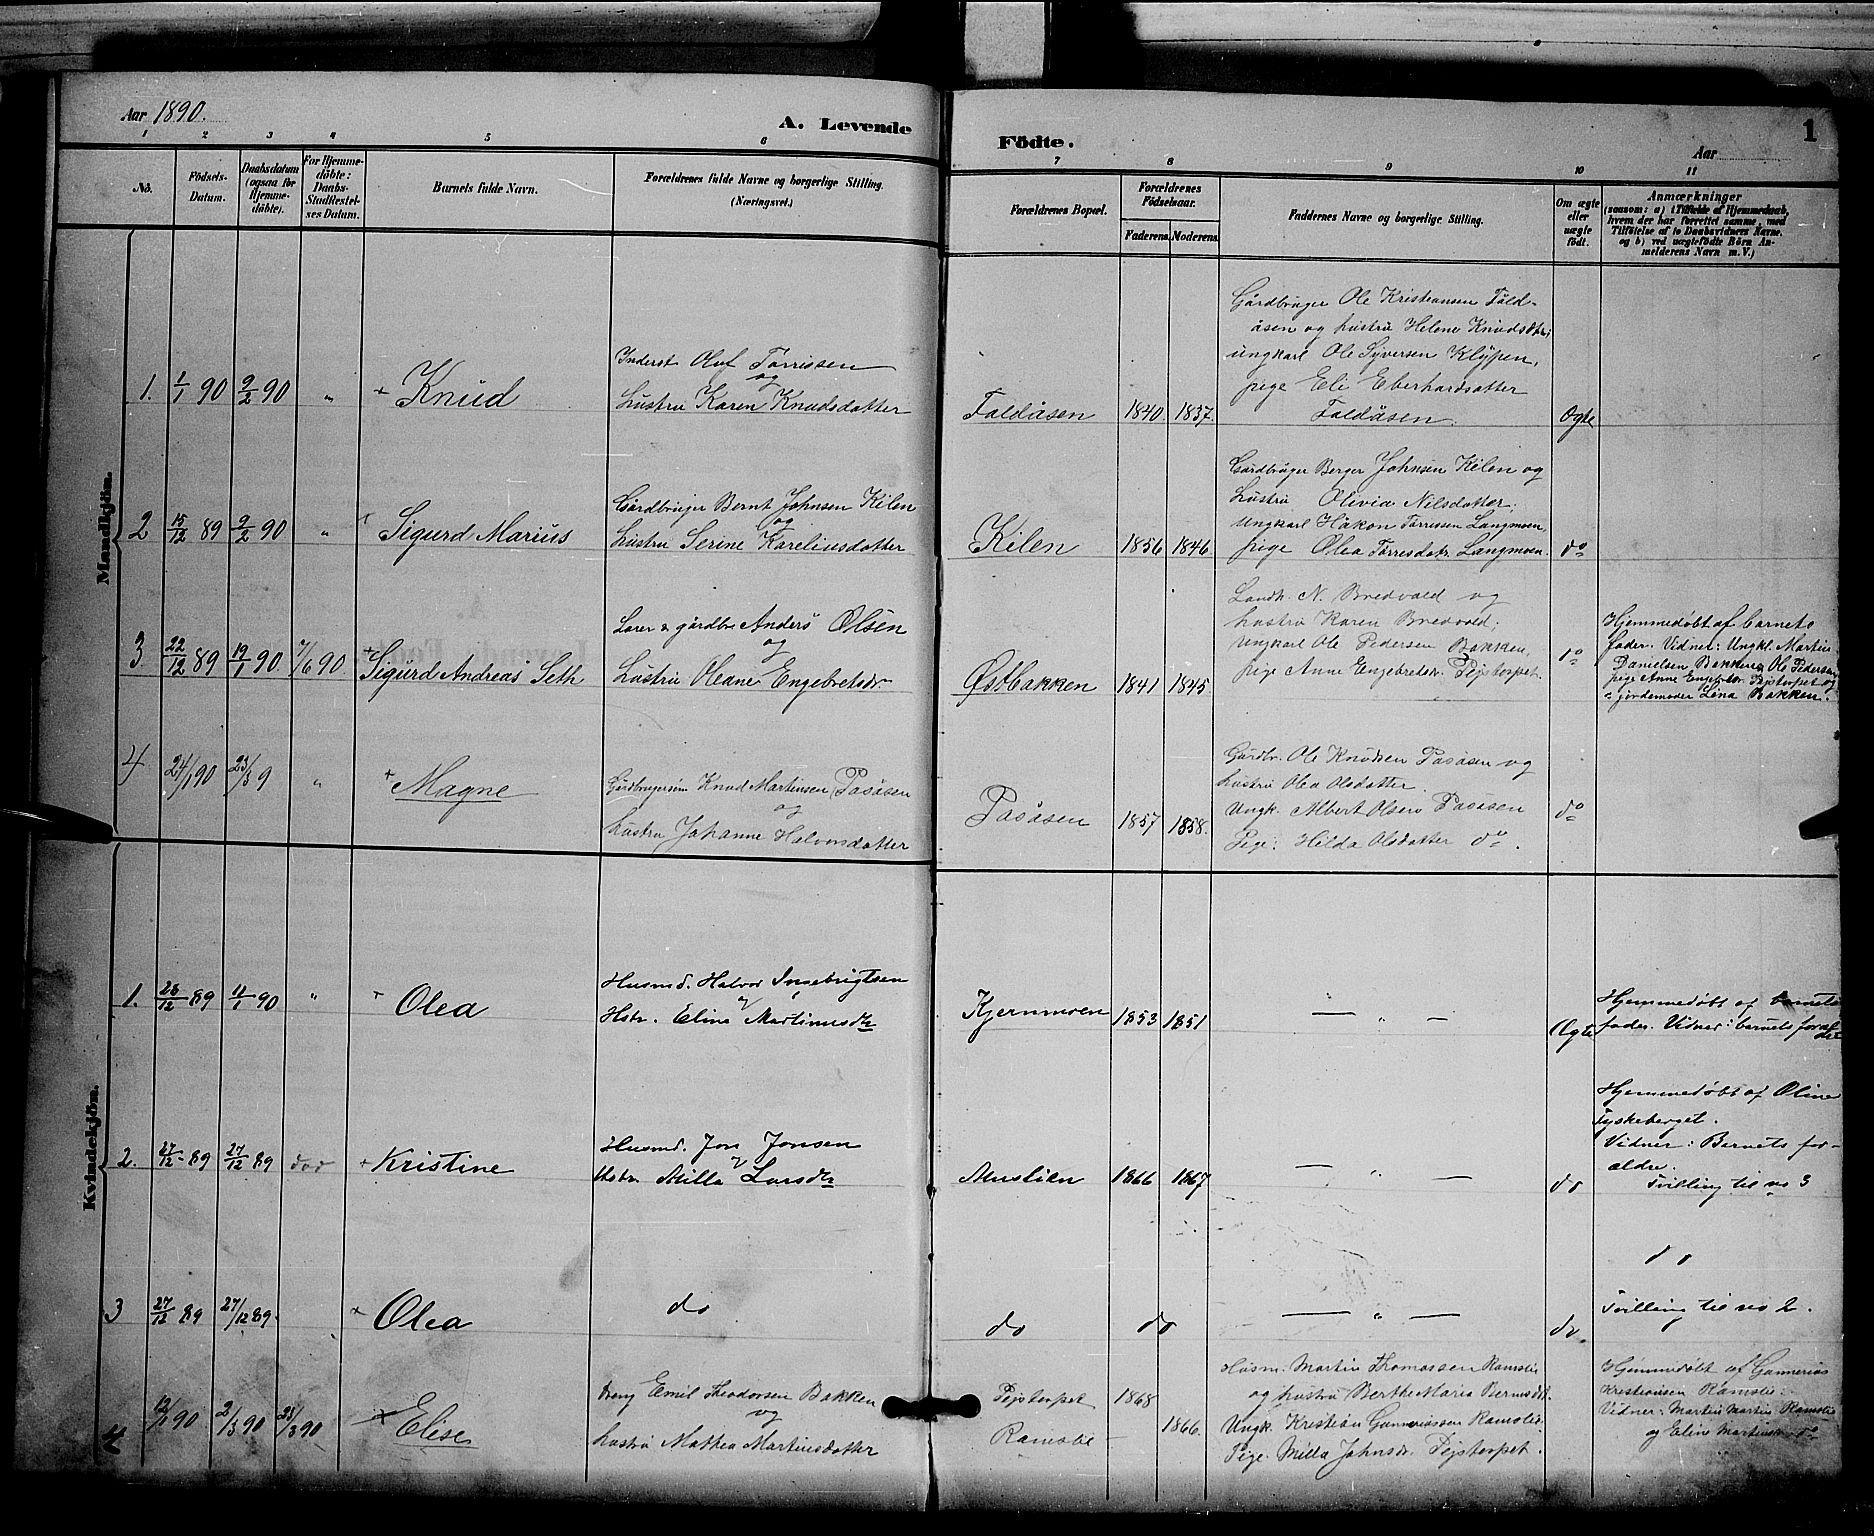 Aar 1890.
A. Levende
Födte.
Aar
1
1 2 3 4 5 6 7 8 9 10 11
No.
Födsels-
Datum.
Daabsdatum
(ogsaa for
Hjemme-
döbte).
For Hjemme-
döbte:
Daabs-
Stadfæstel-
ses Datum.
Barnets fulde Navn.
Forældrenes fulde Navne og borgerlige Stilling.
(Næringsvei.)
Forældrenes Bopæl.
Forældrenes
Födselsaar.
Faderens. Moderens.
Faddernes Navne og borgerlige Stilling.
Om ægte
eller
uægte
födt.
Anmærkninger
(saasom: a) i Tilfælde af Hjemmedaab,
hvem der har forrettet samme, med
Tilföielse af to Daabsvidners Navne,
og b) ved uægtefödte Börn An-
melderens Navn m. V.)
Mandkjön.
1. 1/1 90 9/2 90 " + Knud
Inderst Oluf Torrissen
og
hustru Karen Knudsdatter
Foldåsen 1840. 1837.
Gårdbruger Ole Kristiansen Fold-
åsen og hustru Helene Knudsdtr;
ungkarl Ole Syversen Klypen,
pige Eli Eberhardsatter
Foldåsen.
Ægte
2 15/12 89 9/2 90 " + Sigurd Marius
Gårdbruger Bernt Johnsen Kilen
og
hustru Serine Kareliusdatter
Kilen 1856 1846
Gårdbruger Berger Johnsen Kilen og
hustru Olivia Nilsdatter;
Ungkarl Håkon Torrissen Langmoen,
pige Olea Torrisdatr. Langmoen.
do
3 22/12 89 19/1 90 7/6 90 + Sigurd Andreas Seth
Lærer & gårdbr Anders Olsen
og
hustru Oleane Engebretsdr
Østbakken 1841 1845
Landh. N. Bredvold og
hustru Karen Bredvold;
Ungkarl Ole Pedersen Bakken,
pige Anne Engebretsdr. Pejstorpet.
do
Hjemmedøbt af barnets
fader. Vidner: Ungkl. Martin
Danielsen Bakken, Ole Pedersen
pige Anne Engebrtdr. Pejstorpet og
jordemoder Lina Bakken.
4 24/1 90 23/3 9 " + Magne
Gårdbrugersøn Knud Martinsen Pasåsen
og
hustru Johanne Halvorsdatter
Pasåsen 1857 1858.
Gårdbr. Ole Knudsen Pasåsen og
hustru Olea Olsdatter.
Ungk. Albert Olsen Pasåsen
Pige: Hilda Olsdatter do.
do
Kvindekjön.
1. 28/12 89 11/1 90 " + Olea
Husmd. Halvor Ingebrigtsen
og
Hstr. Eline Martinusdtr
Kjernmoen 1853 1851
— " —
Ægte
Hjemmedøbt af barnets
fader. Vidner: barnets foræl-
dre
2. 27/12 89 27/12 89 død + Kristine
Husmd. Jon Jonsen
og
Hstr. Milla Larsdtr
Mustien 1866 1867
— " —
do
Hjemmedøbt af Oline
Tyskeberget.
Vidner: Barnets for-
ældre.
Tvilling til no 3
3 27/12 89 27/12 89 + Olea
do
do do
— " —
do
do
Tvilling til no 2.
4 12/1 90 2/3 90 23/3 90 + Elise
Dreng Emil Theodorsen Bakken
og
hustru Mathea Martinsdatter
Pejstorpet 1868
Ramslie — 1866.
Husm. Martin Thomassen Ramslie
og hustru Berthe Marie Berntsdtr
Ungk. Kristian Gunneriussen Ramslie.
Pige. Milla Johnsdr. Pejstorpet.
Hjemmedøbt af Gunnerius
Kristiansen Ramslie.
Vidner: Martin Martin. Ramslie
og Eline Martinsdr. do